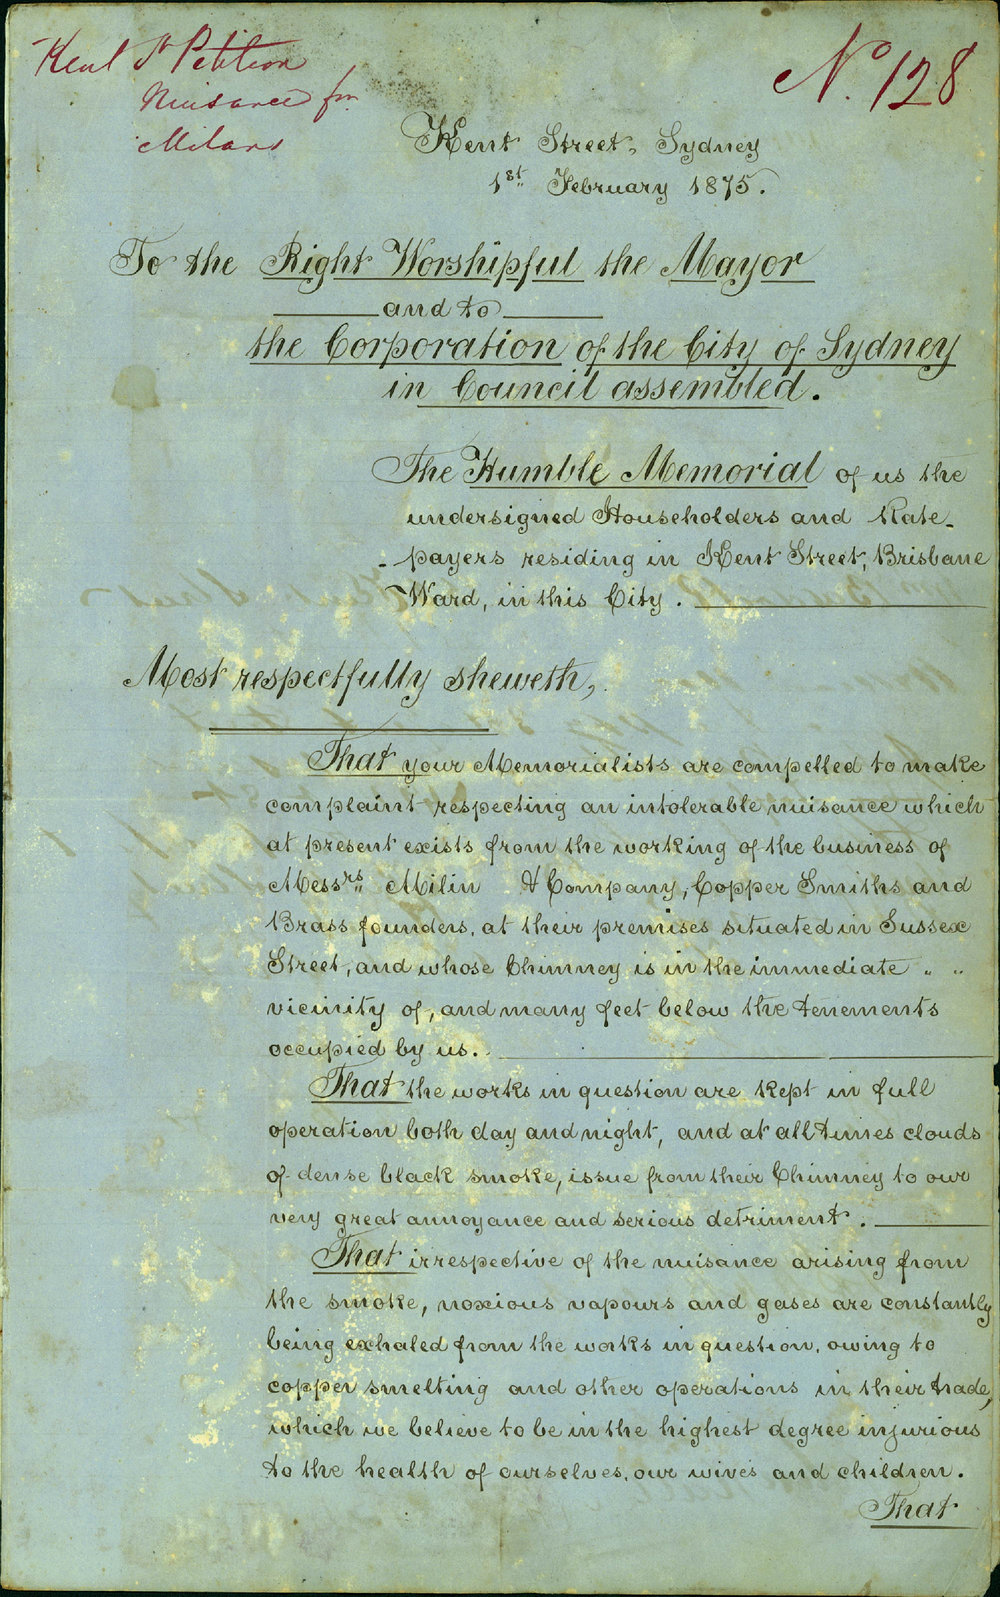 Kent St Petition
Nuisance fm
Milans
No. 128
Kent Street, Sydney
1st February 1875.
To the Right Worshipful the Mayor
and to
the Corporation of the City of Sydney
in Council assembled.
The Humble Memorial of us the
undersigned Householders and Rate-
- payers residing in Kent Street, Brisbane
Ward, in this City.
Most respectfully sheweth,
That your Memorialists are compelled to make
complaint respecting an intolerable nuisance which
at present exists from the working of the business of
Messrs. Milin & Company, Copper Smiths and
Brass founders, at their premises situated in Sussex
Street, and whose Chimney is in the immediate " "
vicinity of, and many feet below the tenements
occupied by us.
That the works in question are kept in full
operation both day and night, and at all times clouds
of dense black smoke, issue from their Chimney to our
very great annoyance and serious detriment.
That irrespective of the nuisance arising from
the smoke, noxious vapours and gases are constantly
being exhaled from the works in question, owing to
copper smelting and other operations in their trade,
which we believe to be in the highest degree injurious
to the health of ourselves, our wives and children.
That